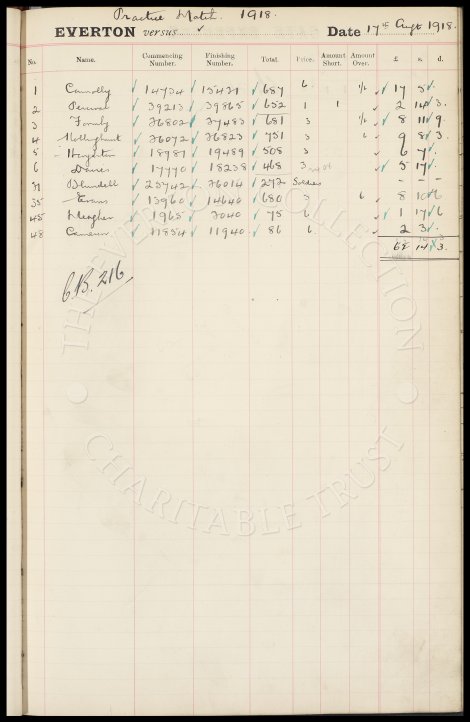 Practice Match. 1918.
EVERTON versus Date 17th Augt 1918.
No. Name. Commencing Number. Finishing Number. Total Price. Amount Short. Amount Over. £ s. d.
1 Connolly 14734 15421 687 6 1/- 17 5
2 Percival 39213 39865 652 1 1 2 14 3
3 Formby 36802 37483 681 3 1/- 8 11 9
4 36072 36823 751 3 6 9 8 3
5 18981 19489 508 3 6 7
6 Davies 17770 18238 468 3 5 17
31 Blundell 25742 26014 272 Soldiers - -
35 Evans 13960 14640 680 3 6 8 10 6
45 Meagher 1965 2040 75 6 1 17 6
48 Cameron 11854 11940 86 6 2 3
62 14 3
C.B. 216
THE EVERTON COLLECTION
CHARITABLE TRUST